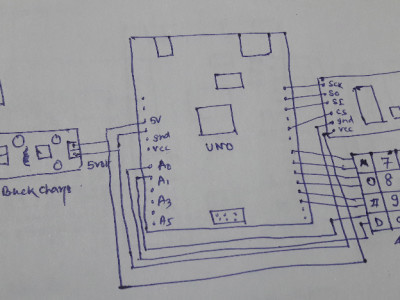 5V
gnd
vcc
A0
A1
A3
A5
UNO
SCK
SO
SI
CS
gnd
vcc
7
8
9
#
D